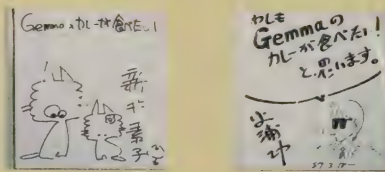 Gemmaのカレーが食べたい!
新井素子
わしも
Gemmaの
カレーが食べたい!
と思います。
火浦功